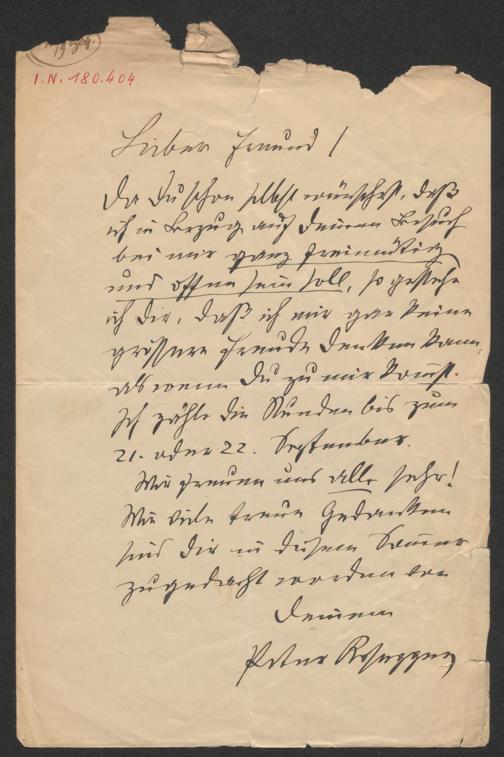 I.N. 180.404
Lieber Freund!
Da Du schon selbst wünschest, daß
ich in Bezug auf Deinen Besuch
bei mir ganz freimütig
und offen sein soll, so gestehe
ich Dir, daß ich mir gar keine
grössere Freude denken kann,
als wenn Du zu mir komst.
Ich zähle die Stunden bis zum
21. oder 22. September.
Wir freuen uns alle sehr!
Wie viele treue Gedanken
sind Dir in diesem Sommer
zugedacht worden von
Deinem
Peter Rosegger